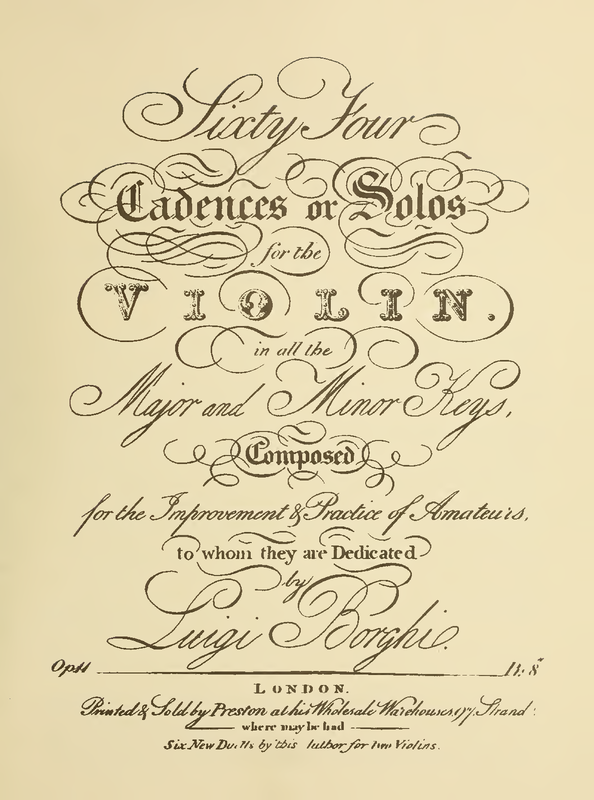 Sixty Four
Cadences or Solos
for the
VIOLIN.
in all the
Major and Minor Keys,
Composed
for the Improvement & Practice of Amateurs,
to whom they are Dedicated
by
Luigi Borghi.
Op 11
LONDON.
Printed & Sold by Preston at his Wholesale Warehouses, 97, Strand:
where may be had
Six New by this for two Violins.